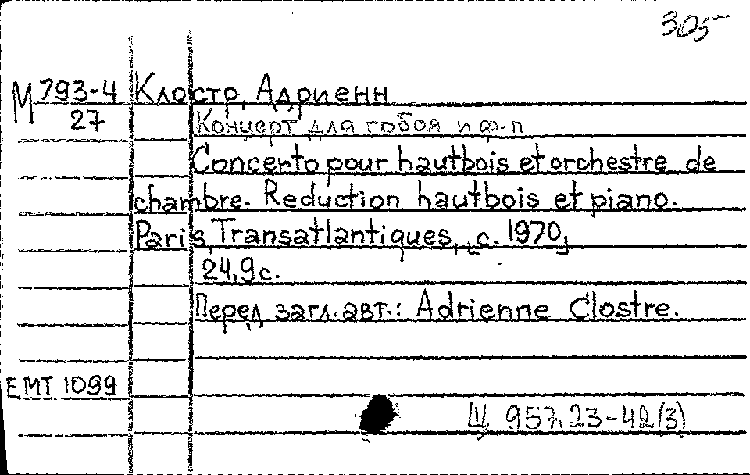 305
М 793-4 Клостр, Адриенн
27 Концерт для гобоя и ф-п
Concerto pour hautbois et orchestre de
chambre. Reduction hautbois et piano.
Paris, Transatlantiques, c. 1970,
24,9 с.
Перед загл. авт.: Adrienne Clostre.
EMT 1099
Ц 957.23-42(3)